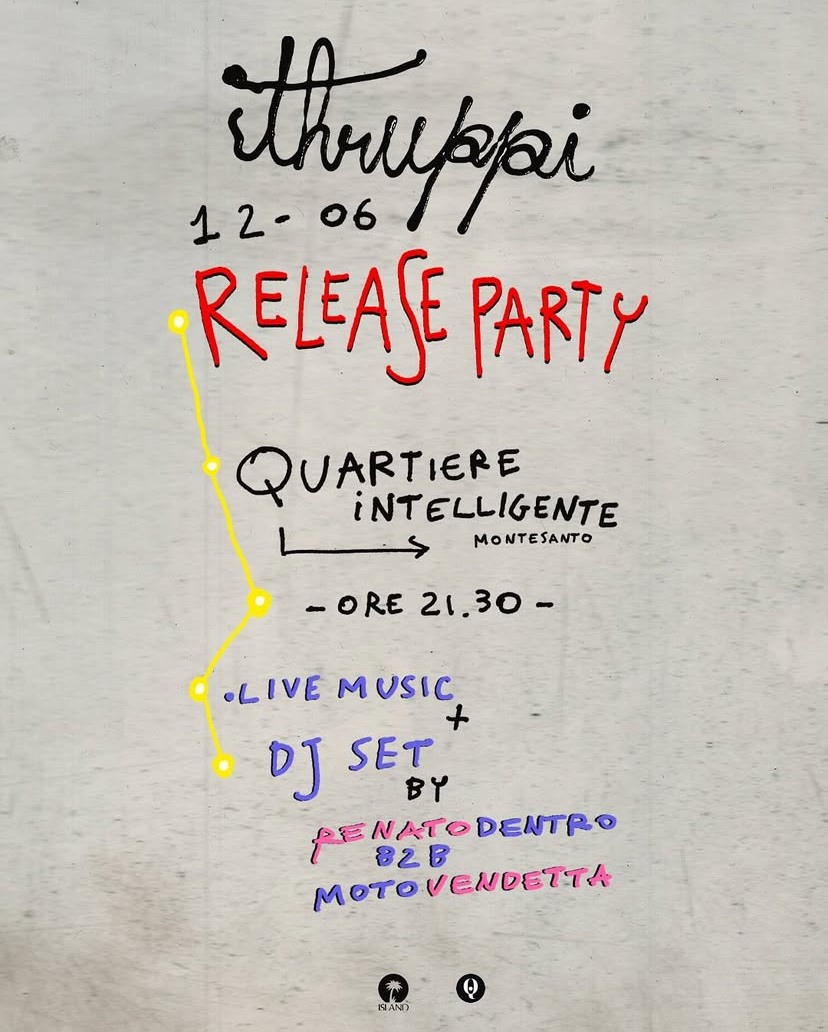 sthruppi
12- 06
RELEASE PARTY
QUARTIERE
iNTELLIGENTE
MONTESANTO
- ORE 21.30 -
.LIVE MUSIC
+
DJ SET
BY
RENATODENTRO
B2B
MOTOVENDETTA
ISLAND